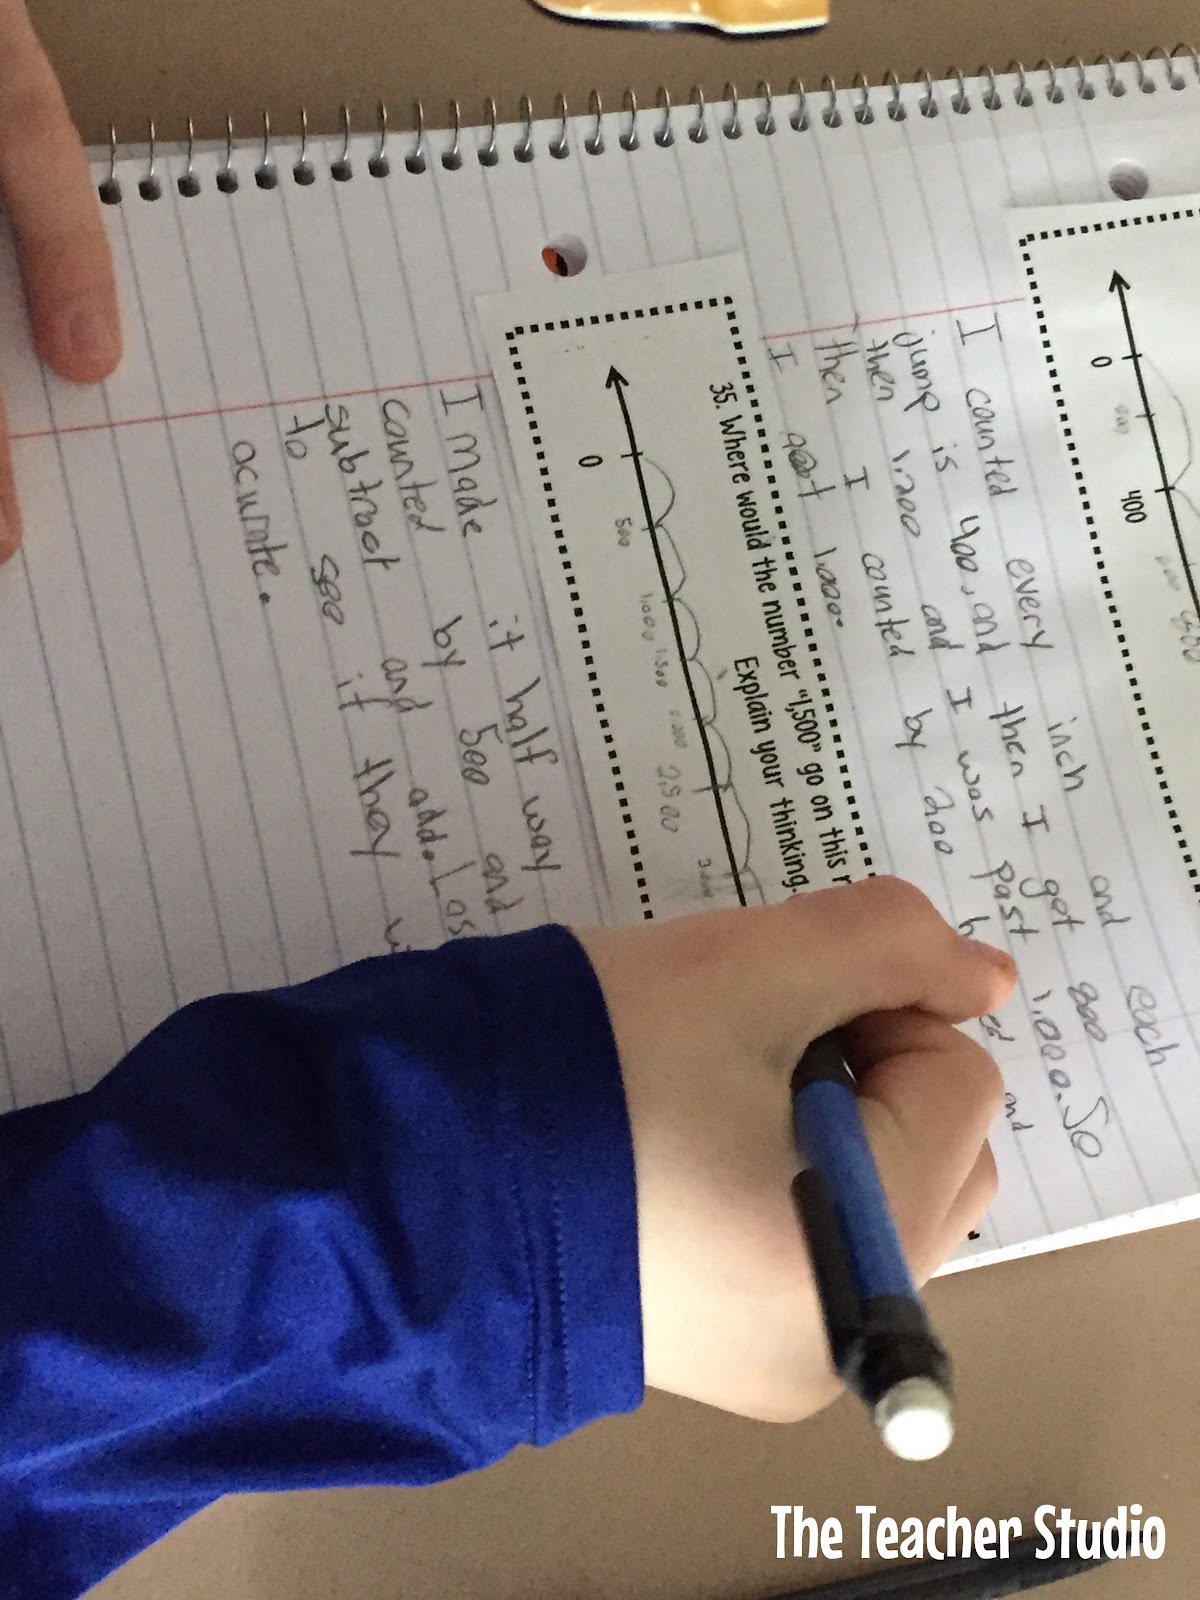 0 400
I counted every inch and each
jump is 400, and then I get 800
then 1,200 and I was past 1,000. So
then I counted by 200 and
I got 1,000.
35. Where would the number "1,500" go on this
Explain your thinking.
0 500 1,000 1,500 2,000 2,500
I made it half way
counted by 500 and
subtract and add.
to see if they
acurate.
The Teacher Studio